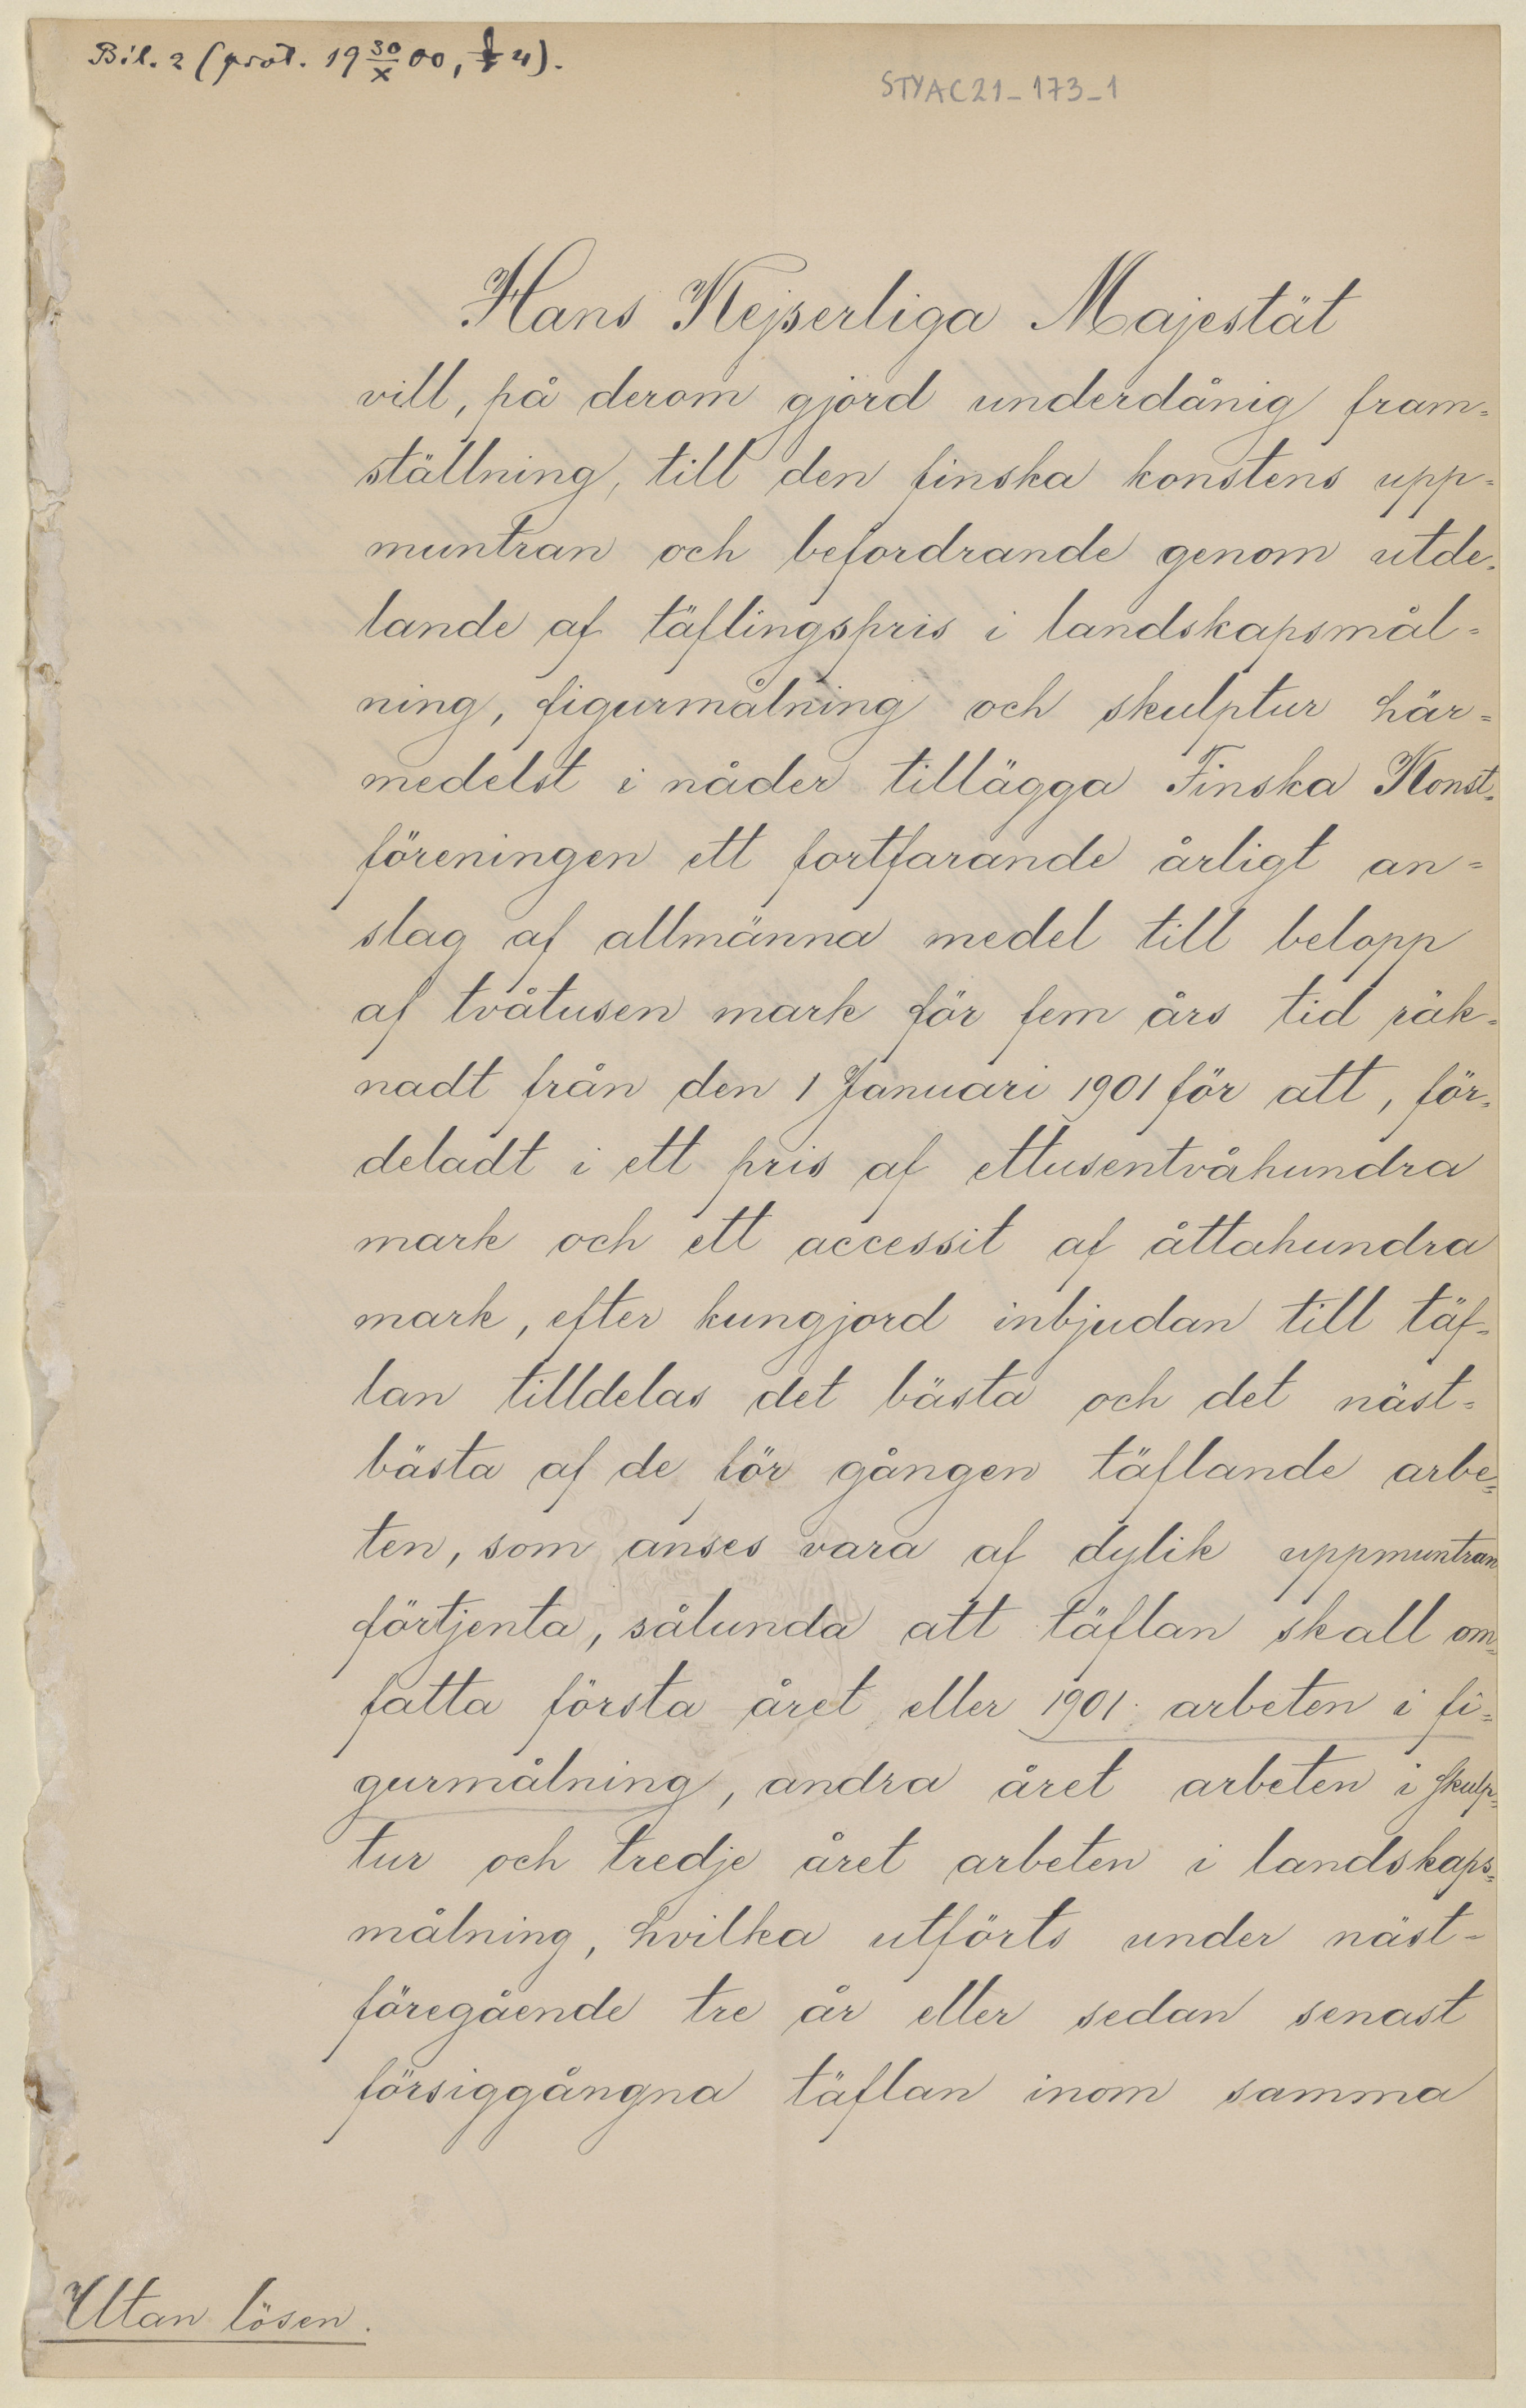 Bil. 2 (prot. 19 30/X 00, § 4).
STYAC21_173_1
Hans Kejserliga Majestät
vill, på derom gjord underdånig fram=
ställning, till den finska konstens upp=
muntran och befordrande genom utde=
lande af täflingspris i landskapsmål=
ning, figurmålning och skulptur här=
medelst i nåder tillägga Finska Konst=
föreningen ett fortfarande årligt an=
slag af allmänna medel till belopp
af tvåtusen mark för fem års tid räk=
nadt från den 1 Januari 1901 för att, för=
deladt i ett pris af ettusentvåhundra
mark och ett accessit af åttahundra
mark, efter kungjord inbjudan till täf=
lan tilldelas det bästa och det näst=
bästa af de för gången täflande arbe=
ten, som anses vara af dylik uppmuntran
förtjenta, sålunda att täflan skall om=
fatta första året eller 1901 arbeten i fi=
gurmålning, andra året arbeten i skulp=
tur och tredje året arbeten i landskaps=
målning, hvilka utförts under näst=
föregående tre år eller sedan senast
försiggångna täflan inom samma
Utan lösen.